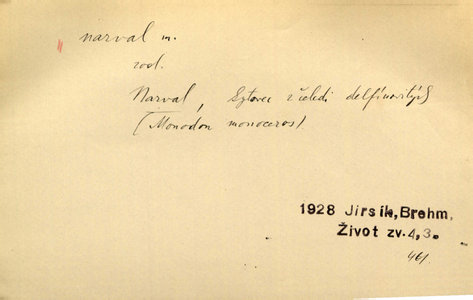 narval m.
zool.
Narval, kytovec z čeledi delfínovitých
(Monodon monoceros)
1928 Jirsík, Brehm,
Život zv. 4, 3.
461.